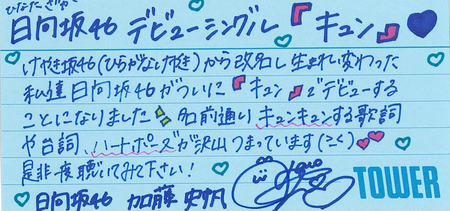 ひなたざか
日向坂46 デビューシングル『キュン』
けやき坂46(ひらがなけやき)から改名し生まれ変わった
私達 日向坂46がついに『キュン』でデビューする
ことになりました 名前通りキュンキュンする歌詞
や台詞、ハートポーズが沢山つまっています(こく)
是非一度聴いてみて下さい!
日向坂46 加藤 史帆
TOWER